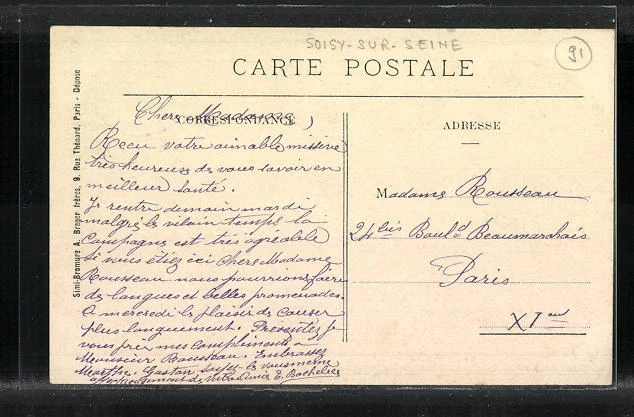 SOISY-SUR-SEINE
91
CARTE POSTALE
Simi-Bromure A. Breger frères, 9. Rue Thénard, Paris - Déposé
CORRESPONDANCE
Chère Madame,
Recu votre aimable missive
très heureuse de vous savoir en
meilleur santé.
Je rentre demain mardi
malgré le vilain temps la
Campagne est très agréable
si vous étiez ici Chere Madame
Rousseau nous pourrions faire
de longues et belles promenades.
A mercredi le plaisir de causer
plus longuement. Presentez je
vous prie mes compliments à
Monsieur Rousseau. Embrassez
Marthe, Gaston
votre amie E. Bachelier
ADRESSE
Madame Rousseau
24 bis Boul.d Beaumarchais
Paris
XIem